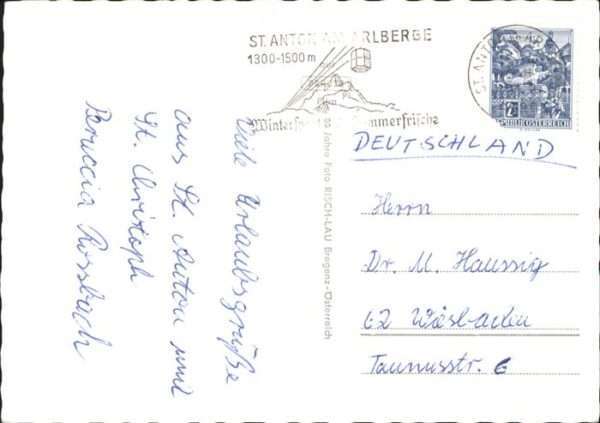 ST. ANTON AM ARLBERG
1300-1500 m
Wintersport Sommerfrische
ST. ANTON
REPUBLIK ÖSTERREICH
DEUTSCHLAND
Herrn
Dr. M. Haussig
62 Wiesbaden
Taunusstr. 6
Jahre Foto RISCH-LAU Bregenz-Österreich
Viele Urlaubsgrüße
aus St. Anton und
St. Christoph
Rossbach